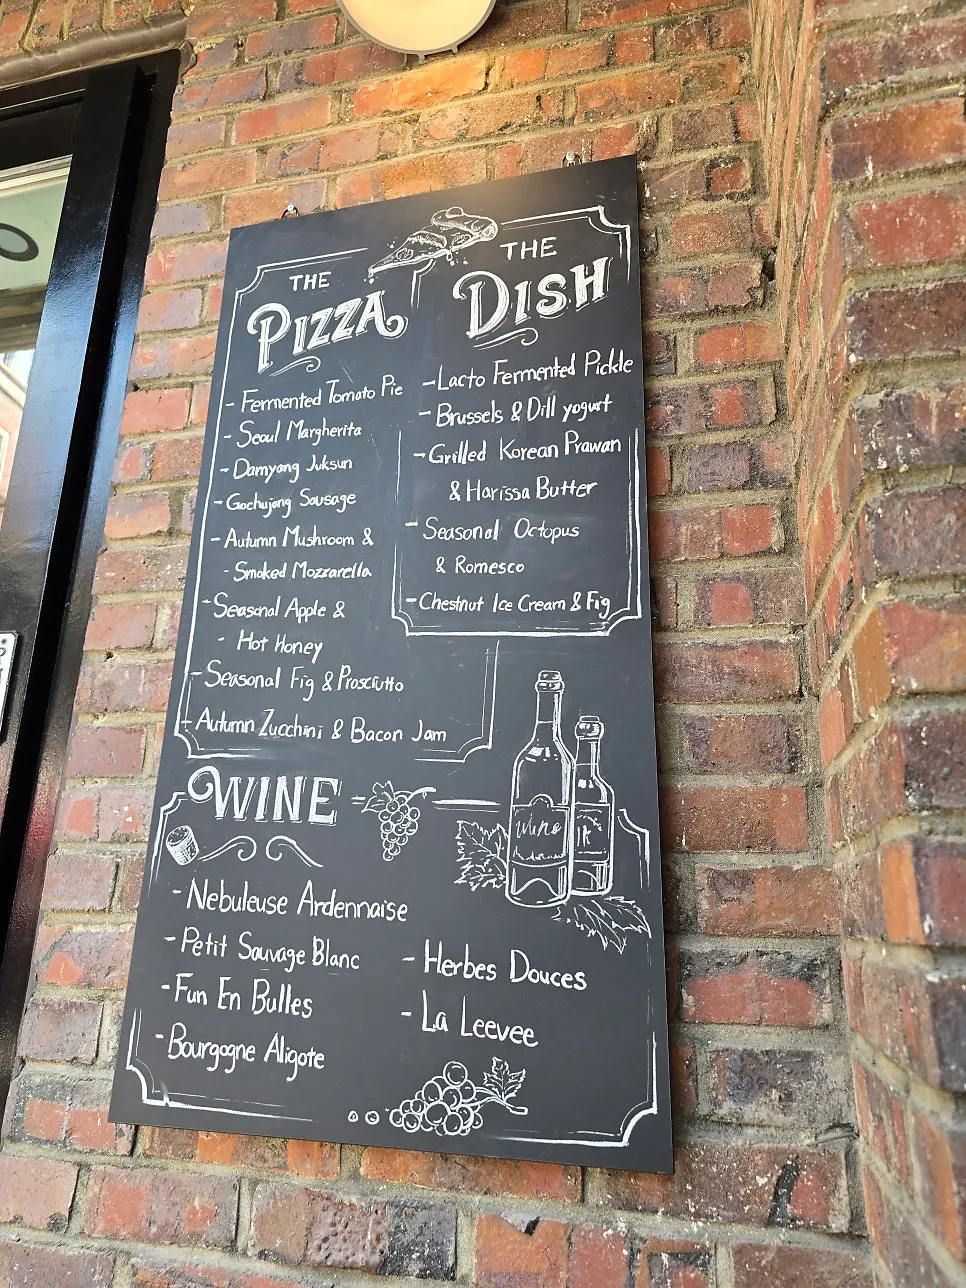 THE
PIZZA
- Fermented Tomato Pie
- Seoul Margherita
- Damyang Juksun
- Gochujang Sausage
- Autumn Mushroom &
- Smoked Mozzarella
- Seasonal Apple &
- Hot Honey
- Seasonal Fig & Prosciutto
- Autumn Zucchini & Bacon Jam
THE
DISH
- Lacto Fermented Pickle
- Brussels & Dill yogurt
- Grilled Korean Prawan
& Harissa Butter
- Seasonal Octopus
& Romesco
- Chestnut Ice Cream & Fig
WINE
Wine
- Nebuleuse Ardennaise
- Petit Sauvage Blanc
- Fun En Bulles
- Bourgogne Aligote
- Herbes Douces
- La Leevee